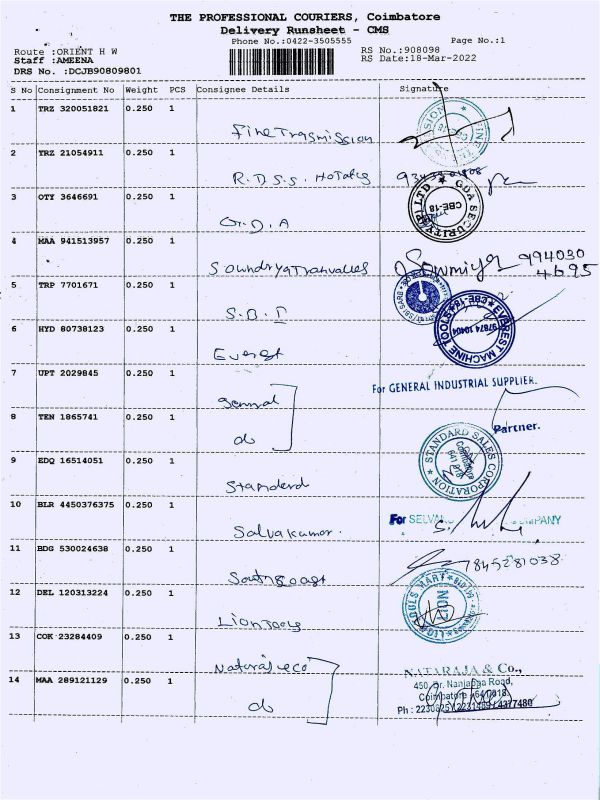 THE PROFESSIONAL COURIERS, Coimbatore
Delivery Runsheet - CMS
Phone No.:0422-3505555
Page No.:1
Route :ORIENT H W
RS No.:908098
Staff :AMEENA
RS Date:18-Mar-2022
DRS No. :DCJB90809801
S No Consignment No Weight PCS Consignee Details Signature
1 TRZ 320051821 0.250 1
fine Trasmission
2 TRZ 21054911 0.250 1
R.D.S.S.
3 OTY 3646691 0.250 1
G.D.A
GDA SECURITY P LTD CBE-18
4 MAA 941513957 0.250 1
Sowmiya 994030
4695
5 TRP 7701671 0.250 1
S.B.I
6 HYD 80738123 0.250 1
Everest
EVEREST MACHINE TOOLS CBE-18 97874 10404
7 UPT 2029845 0.250 1
General
For GENERAL INDUSTRIAL SUPPLIER.
8 TEN 1865741 0.250 1
do
Partner.
9 EDQ 16514051 0.250 1
Standerd
STANDARD SALES CORPORATION Coimbatore 641 018
10 BLR 4450376375 0.250 1
Selvakumar.
For
11 BDG 530024638 0.250 1
7845281038
12 DEL 120313224 0.250 1
Lion Tools
13 COK 23284409 0.250 1
Nataraj &co
14 MAA 289121129 0.250 1
do
NATARAJA & Co.,
450, Dr. Nanjappa Road,
Coimbatore - 641 018.
Ph :